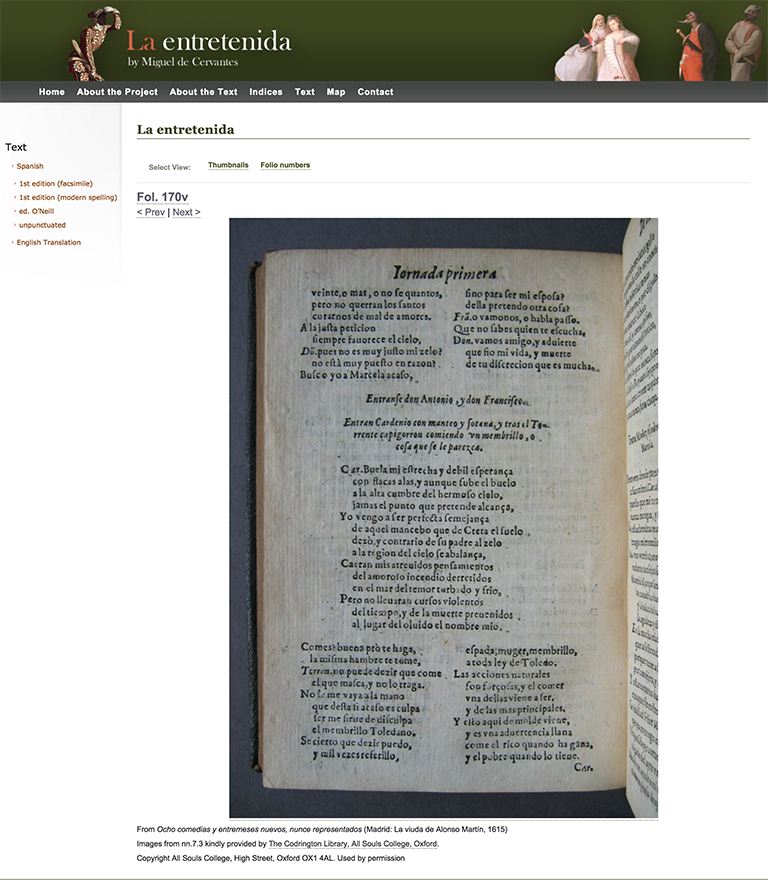 La entretenida
by Miguel de Cervantes
Home About the Project About the Text Indices Text Map Contact
Text
Spanish
1st edition (facsimile)
1st edition (modern spelling)
ed. O'Neill
unpunctuated
English Translation
La entretenida
Select View: Thumbnails Folio numbers
Fol. 170v
< Prev | Next >
Iornada primera
veinte, o mas, o no ſe quantos,
pero no querran los ſantos
curarnos de mal de amores.
A la juſta peticion
ſiempre fauorece el cielo,
Dō. pues no es muy juſto mi zelo?
no eſtà muy pueſto en razon?
Buſco yo a Marcela acaſo,
ſino para ſer mi eſpoſa?
della pretendo otra coſa?
Frã. o vamonos, o habla paſſo.
Que no ſabes quien te eſcucha,
Don. vamos amigo, y aduierte
que fio mi vida, y muerte
de tu diſcrecion que es mucha.
Entranſe don Antonio, y don Franciſco.
Entran Cardenio con manteo y ſotana, y tras el To-
rrente capigorron comiendo vn membrillo, o
coſa que ſe le parezca.
Car. Buela mi eſtrecha y debil eſperança
con flacas alas, y aunque ſube el buelo
a la alta cumbre del hermoſo cielo,
jamas el punto que pretende alcança,
Yo vengo a ſer perfecta ſemejança
de aquel mancebo que de Creta el ſuelo
dexò, y contrario de ſu padre al zelo
a la region del cielo ſe abalança,
Caeran mis atreuidos penſamientos
del amoroſo incendio derretidos
en el mar del temor turbado y frio,
Pero no lleuaran curſos violentos
del tiempo, y de la muerte preuenidos
al lugar del oluido el nombre mio.
Comes? buena prò te haga,
la miſma hambre te tome,
Torren. no puede dezir que come
el que maſca, y no lo traga.
No ſe me vaya a la mano
que deſta ſi acaſo es culpa
ſer me ſirue de diſculpa
el membrillo Toledano.
Se cierto que dezir puedo,
y mil vezes referillo,
eſpada, muger, membrillo,
a toda ley de Toledo.
Las acciones naturales
ſon forçoſas, y el comer
vna dellas viene a ſer,
y de las mas principales.
Y eſto aqui de molde viene,
y es vna aduertencia llana
come el rico quando ha gana,
y el pobre quando lo tiene.
Car.
From Ocho comedias y entremeses nuevos, nunce representados (Madrid: La viuda de Alonso Martín, 1615)
Images from nn.7.3 kindly provided by The Codrington Library, All Souls College, Oxford.
Copyright All Souls College, High Street, Oxford OX1 4AL. Used by permission